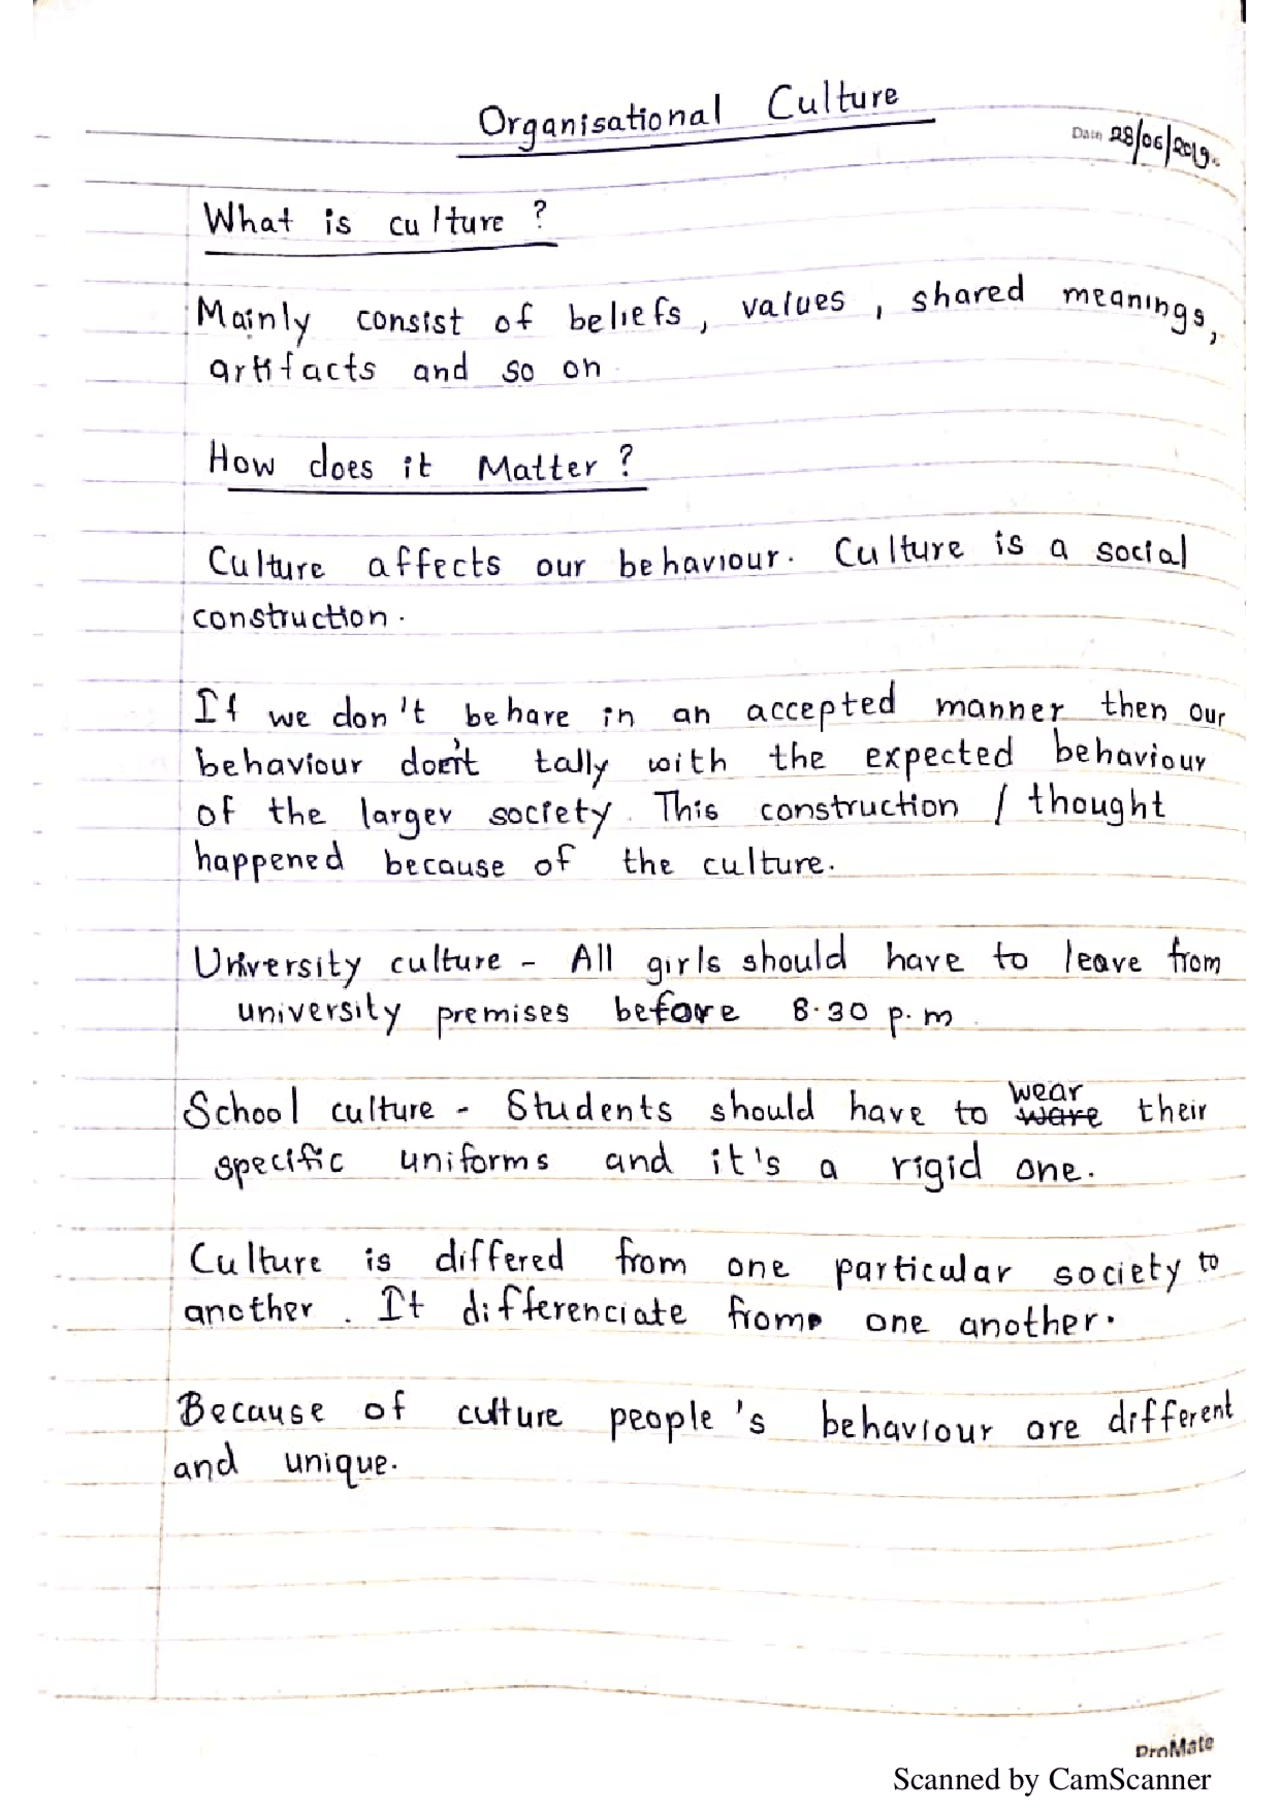 Organisational Culture
Date 28/06/2019.
What is culture ?
Mainly consist of beliefs, values, shared meanings,
artifacts and so on
How does it Matter ?
Culture affects our behaviour. Culture is a social
construction.
If we don't behave in an accepted manner then our
behaviour don't tally with the expected behaviour
of the larger society. This construction / thought
happened because of the culture.
University culture - All girls should have to leave from
university premises before 8.30 p.m
School culture - Students should have to ware wear their
specific uniforms and it's a rigid one.
Culture is differed from one particular society to
another. It differenciate from one another.
Because of culture people's behaviour are different
and unique.
ProMate
Scanned by CamScanner